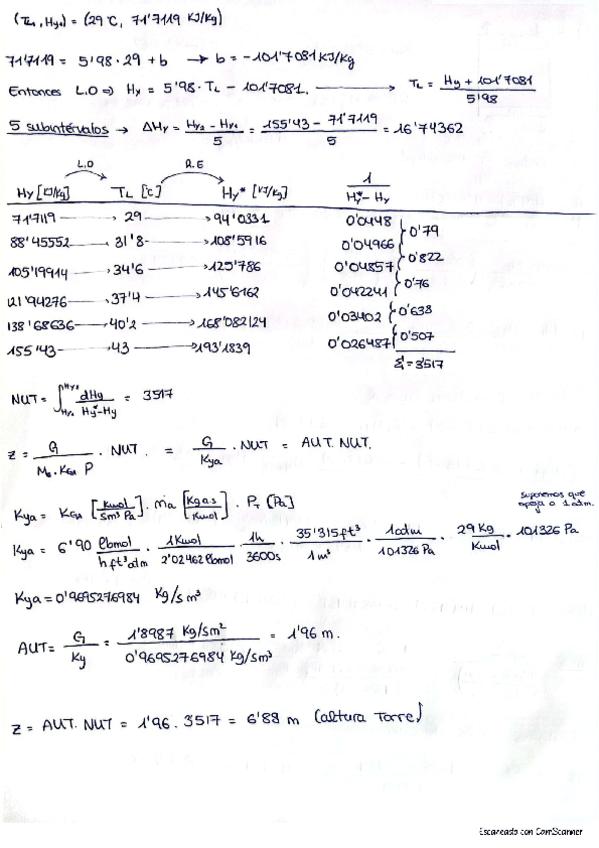 (TL1, Hy1) = (29°C, 71'7119 KJ/Kg)
71'7119 = 5'98 · 29 + b → b = -101'7081 KJ/Kg
Entonces L.O ⇒ Hy = 5'98 · TL - 101'7081. → TL = (Hy + 101'7081) / 5'98
5 subintérvalos → ΔHy = (Hy2 - Hy1) / 5 = (155'43 - 71'7119) / 5 = 16'74362
L.O R.E
Hy [KJ/Kg] TL [°C] Hy* [KJ/Kg] 1 / (Hy* - Hy)
71'7119 → 29 → 94'0331 0'0448
0'79
88'45552 → 31'8 → 108'5916 0'04966
0'822
105'19914 → 34'6 → 125'786 0'04857
0'76
121'94276 → 37'4 → 145'6162 0'042241
0'638
138'68636 → 40'2 → 168'082124 0'03402
0'507
155'43 → 43 → 193'1839 0'026487
Σ = 3'517
NUT = ∫Hy1^Hy2 dHy / (Hy* - Hy) = 3517
z = G / (MB · KGa P) · NUT. = G / Kya · NUT = AUT. NUT.
Suponemos que opera a 1 atm.
Kya = KGa [Kmol / sm³ Pa] · ma [Kg a.s / Kmol] · PT [Pa]
Kya = 6'90 lbmol / (h ft³ atm) · 1Kmol / 2'02462 lbmol · 1h / 3600s · 35'315 ft³ / 1 m³ · 1atm / 101326 Pa · 29 Kg / Kmol · 101326 Pa
Kya = 0'9695276984 Kg/s m³
AUT = G / Ky = 1'8987 Kg/sm² / 0'9695276984 Kg/sm³ = 1'96 m.
z = AUT. NUT = 1'96 . 3517 = 6'89 m (altura Torre)
Escaneado con CamScanner